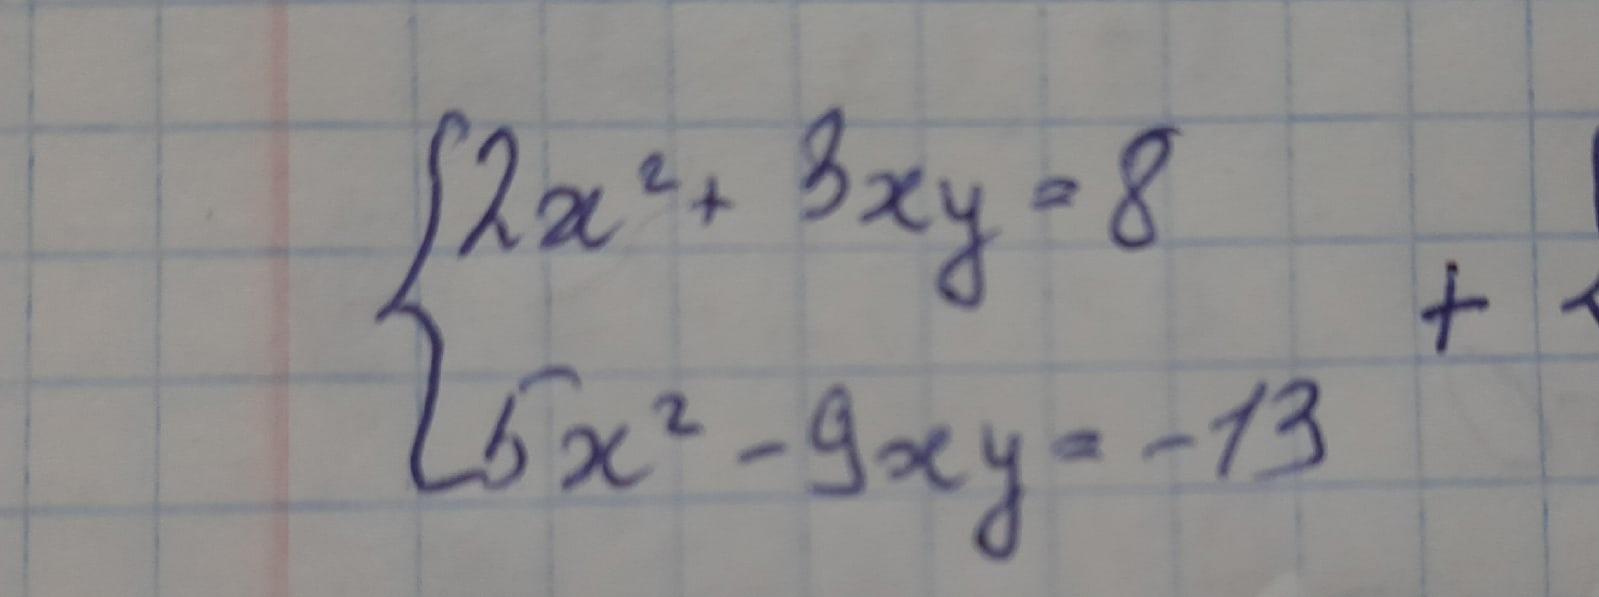 {2x² + 3xy = 8
5x² - 9xy = -13 +